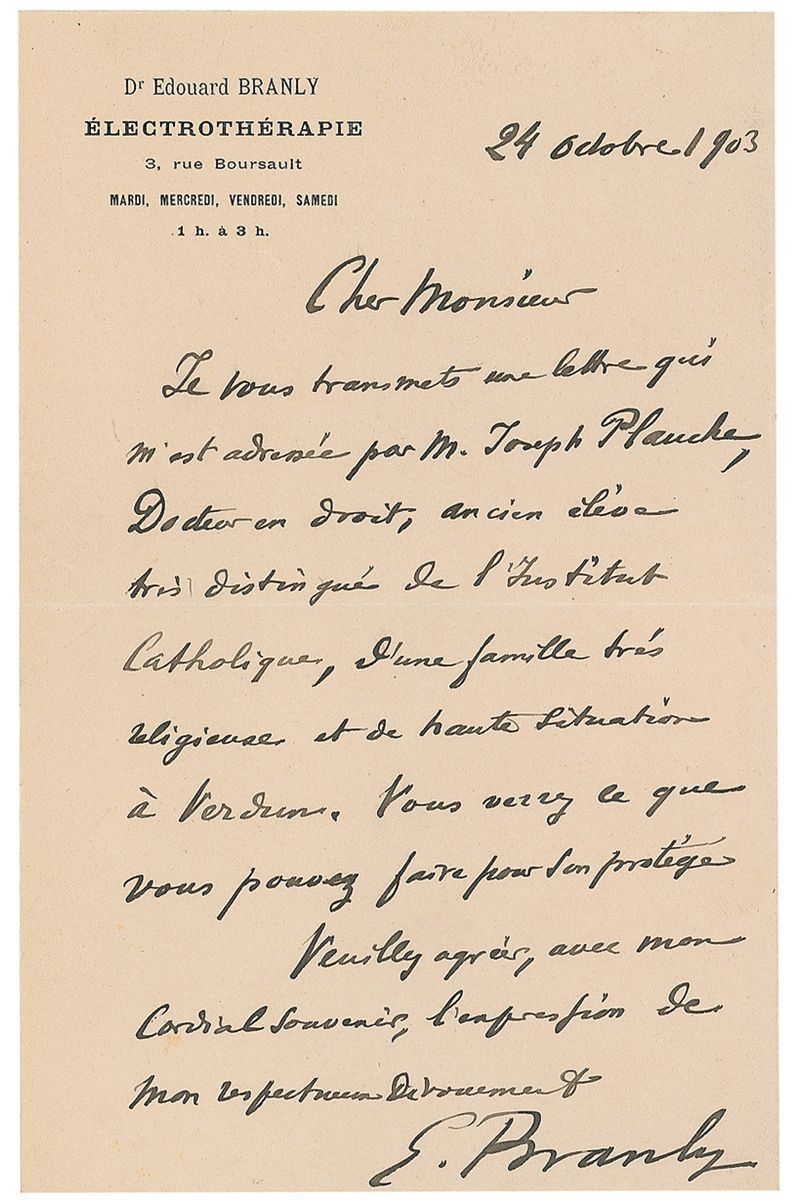 Dr Edouard BRANLY
ÉLECTROTHÉRAPIE
3, rue Boursault
MARDI, MERCREDI, VENDREDI, SAMEDI
1 h. à 3 h.
24 octobre 1903
Cher Monsieur
Je vous transmets une lettre qui
m'est adressée par M. Joseph Planche,
Docteur en droit, ancien élève
très distingué de l'Institut
Catholique, d'une famille très
religieuse et de haute situation
à Verdun. Vous verrez ce que
vous pouvez faire pour son protégé
Veuillez agréer, avec mon
Cordial souvenir, l'expression de
mon respectueux dévouement
E. Branly